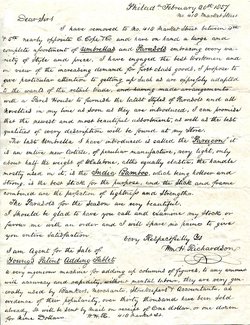 Philad^a February 20th 1857
No 418 Market Street
Dear Sir
I have removed to No. 418 Market Street between 4th
& 5th nearly opposite and have on hand a large and
complete assortment of Umbrellas and Parasols embracing every va-
riety of style and price. I have engaged the best workmen and
in view of the increasing demand for first class goods, I propose to
give particular attention to getting up such as are especially adapted
to the wants of the retail trade, and having made arrangements
with a House to furnish the latest styles of Parasols and all
novelties in my line as soon as they are introduced, I can promise
that the newest and most beautiful assortment, as well as the best
qualities of every description will be found at my Store.
The best umbrella I have introduced is called the Paragon it
is an entire new article, of peculiar manufacture, very light, only
about half the weight of Whalebone, altho equally elastic, the handle
mostly used in it, is the India Bamboo, which being hollow and
strong, is the best stick for the purpose, and the stick and frame
combined are the perfection of lightness and strength.
The Parasols for the season are very beautiful.
I should be glad to have you call and examine my stock or
favour me with an order and I will spare no pains to give
you entire satisfaction.
Very Respectfully
Wm H. Richardson
I am Agent for the sale of
Fowler's Patent Adding Tablet
a very ingenious machine for adding up columns of figures, to any amount
with accuracy and rapidity, without mental labour, they are very gen-
erally used by Bankers, Merchants, Accountants as
evidence of their popularity, over thirty thousand have been sold
already. It will be sent by mail on receipt of One dollar or one dozen
for Nine Dollars. WHR. 418 Market St.